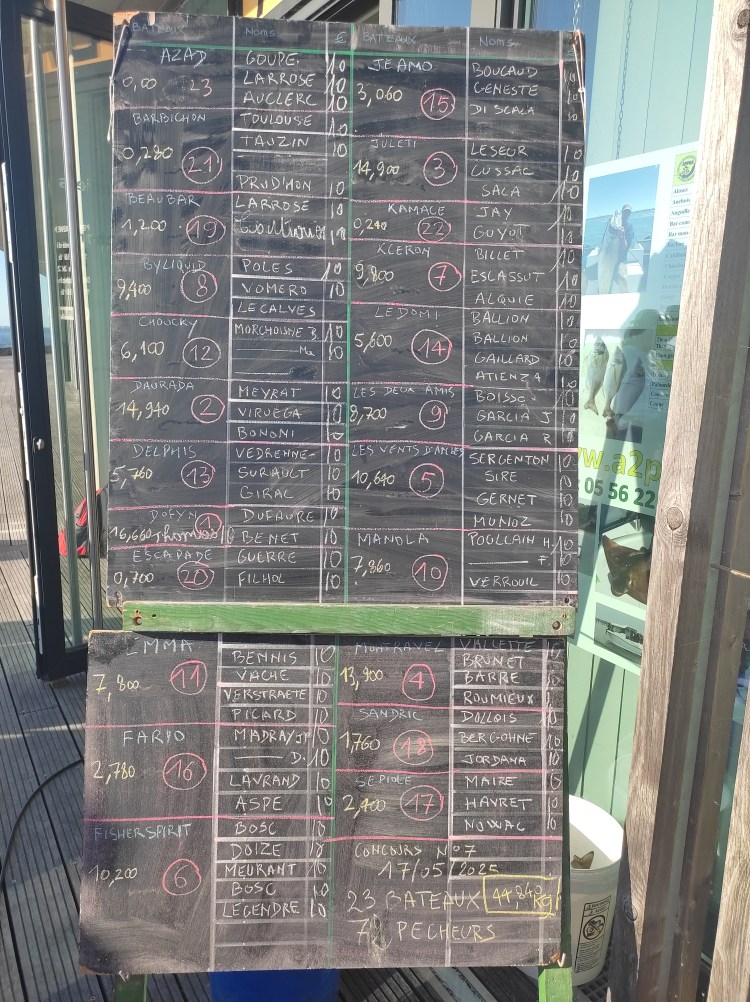 BATEAUX NOMS £
AZAD
0,00 23
GOUPE. 10
LARROSE 10
AUCLERC 10
BARBICHON
0,280 21
TOULOUSE 10
TAUZIN 10
PRUD'HON 10
BEAUBAR
1,200 19
LARROSE 10
BYLIQUID
9,400 8
POLES 10
VOMERO 10
LECALVES
CHOUCKY
6,100 12
MORCHOISNE B 10
Me 10
DAURADA
14,940 2
MEYRAT 10
VIRUEGA 10
BONONI 10
DELPHIS
5,760 13
VEDRENNE 10
SURIAULT 10
GIRAL 10
DOFYN
16,660 1
Thomas 10
DUFAURE 10
BENET 10
ESCAPADE
0,700 20
GUERRE 10
FILHOL 10
BATEAUX NOMS
JEAMO
3,060 15
BOUCAUD 10
GENESTE 10
DI SCALA 10
JULETI
14,900 3
LESEUR 10
CUSSAC 10
SALA 10
KAMALE
0,240 22
JAY 10
GUYOT 10
KLERON
9,800 7
BILLET 10
ESCLASSUT 10
ALQUIE 10
LEDOMI
5,600 14
BALLION 10
BALLION 10
GAILLARD 10
ATIENZA 10
LES DEUX AMIS
8,700 9
BOISSO 10
GARCIA J 10
GARCIA R 10
LES VENTS D'ANGES
10,640 5
SERGENTON 10
SIRE 10
GERNET 10
MUNOZ 10
MANOLA
7,860 10
POULLAIN H 10
F. 10
VERROUIL 10
EMMA
7,800 11
BENNIS 10
VACHE 10
VERSTRAETE 10
PICARD 10
FARYO
2,780 16
MADRAY JP 10
D. 10
LAVRAND 10
ASPE 10
FISHERSPIRIT
10,200 6
BOSC 10
DOIZE 10
MEURANT 10
BOSC 10
LEGENDRE 10
MONTRAVEL
13,900 4
VALLETTE 10
BRUNET 10
BARRE 10
ROUMIEUX 10
SANDRIC
1,760 18
DOLLOIS 10
BERGOHNE 10
JORDANA 10
SEPIOLE
2,400 17
MAIRE 10
HAVRET 10
NOWAC 10
CONCOURS N°7
17/05/2025
23 BATEAUX
PECHEURS
w.a2p
05 56 22